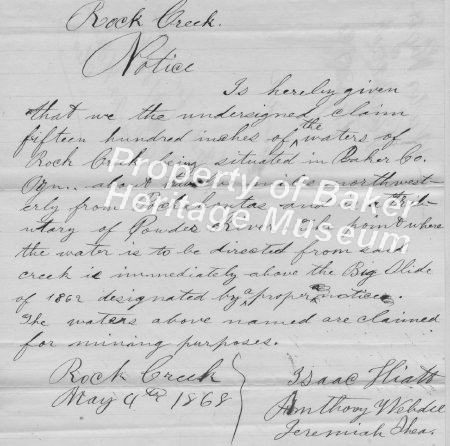 Rock Creek.
Notice
Is hereby given
that we the undersigned claim
fifteen hundred inches of the waters of
Rock Creek being situated in Baker Co.
Ogn. about miles northwest
erly from Pocahontas and a tribu
ntary of Powder River. The point where
the water is to be directed from said
creek is immediately above the Big Slide
of 1862 designated by a proper notice.
The waters above named are claimed
for mining purposes.
Rock Creek
May 4th 1868
Isaac Hiatt
Anthony Webdell
Jeremiah Shea
Property of Baker
Heritage Museum